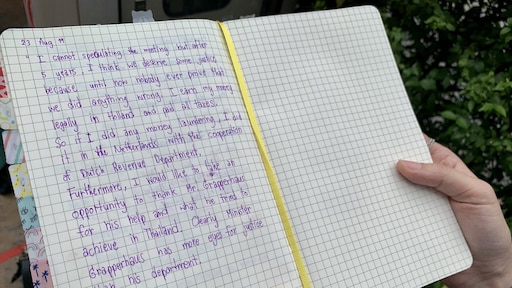 23 Aug. 19
" I cannot speculating the meeting but after
5 years, I think we deserve some justice
because until now nobody ever prove that
we did anything wrong. I earn my money
legally in Thailand and paid all taxes.
So if I did any money laundering, I did
it in the Netherlands with the cooperation
of Dutch Revenue Department.
Furthermore, I would like to give an
opportunity to thank Mr. Grapperhaus
for his help and what he tried to
achieve in Thailand. Clearly Minister
Grapperhaus has more eyes for justice
than his department.